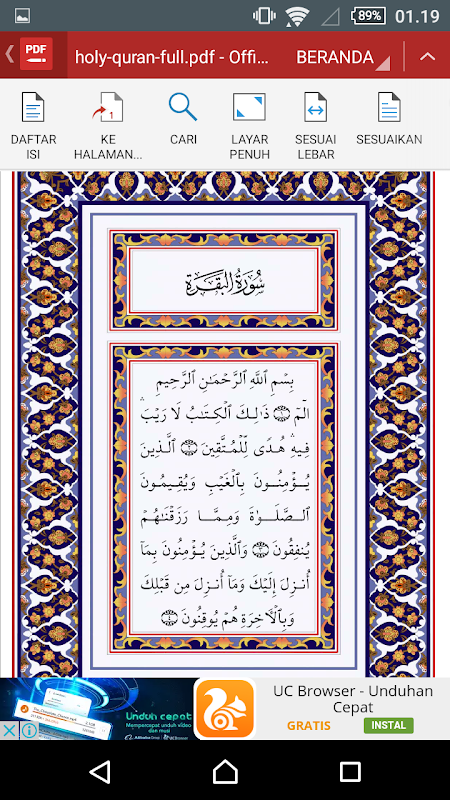 89% 01.19
PDF holy-quran-full.pdf - Offi... BERANDA
DAFTAR ISI
KE HALAMAN...
CARI
LAYAR PENUH
SESUAI LEBAR
SESUAIKAN
سُورَةُ البَقَرَةِ
بِسۡمِ ٱللَّهِ ٱلرَّحۡمَـٰنِ ٱلرَّحِيمِ
الٓمٓ ۝١ ذَٰلِكَ ٱلۡكِتَـٰبُ لَا رَيۡبَۛ
فِيهِۛ هُدًى لِّلۡمُتَّقِينَ ۝٢ ٱلَّذِينَ
يُؤۡمِنُونَ بِٱلۡغَيۡبِ وَيُقِيمُونَ
ٱلصَّلَوٰةَ وَمِمَّا رَزَقۡنَـٰهُمۡ
يُنفِقُونَ ۝٣ وَٱلَّذِينَ يُؤۡمِنُونَ بِمَآ
أُنزِلَ إِلَيۡكَ وَمَآ أُنزِلَ مِن قَبۡلِكَ
وَبِٱلۡأَخِرَةِ هُمۡ يُوقِنُونَ ۝٤
Unduh cepat
Mempercepat unduh video
dan musi
UC Browser - Unduhan
Cepat
GRATIS INSTAL